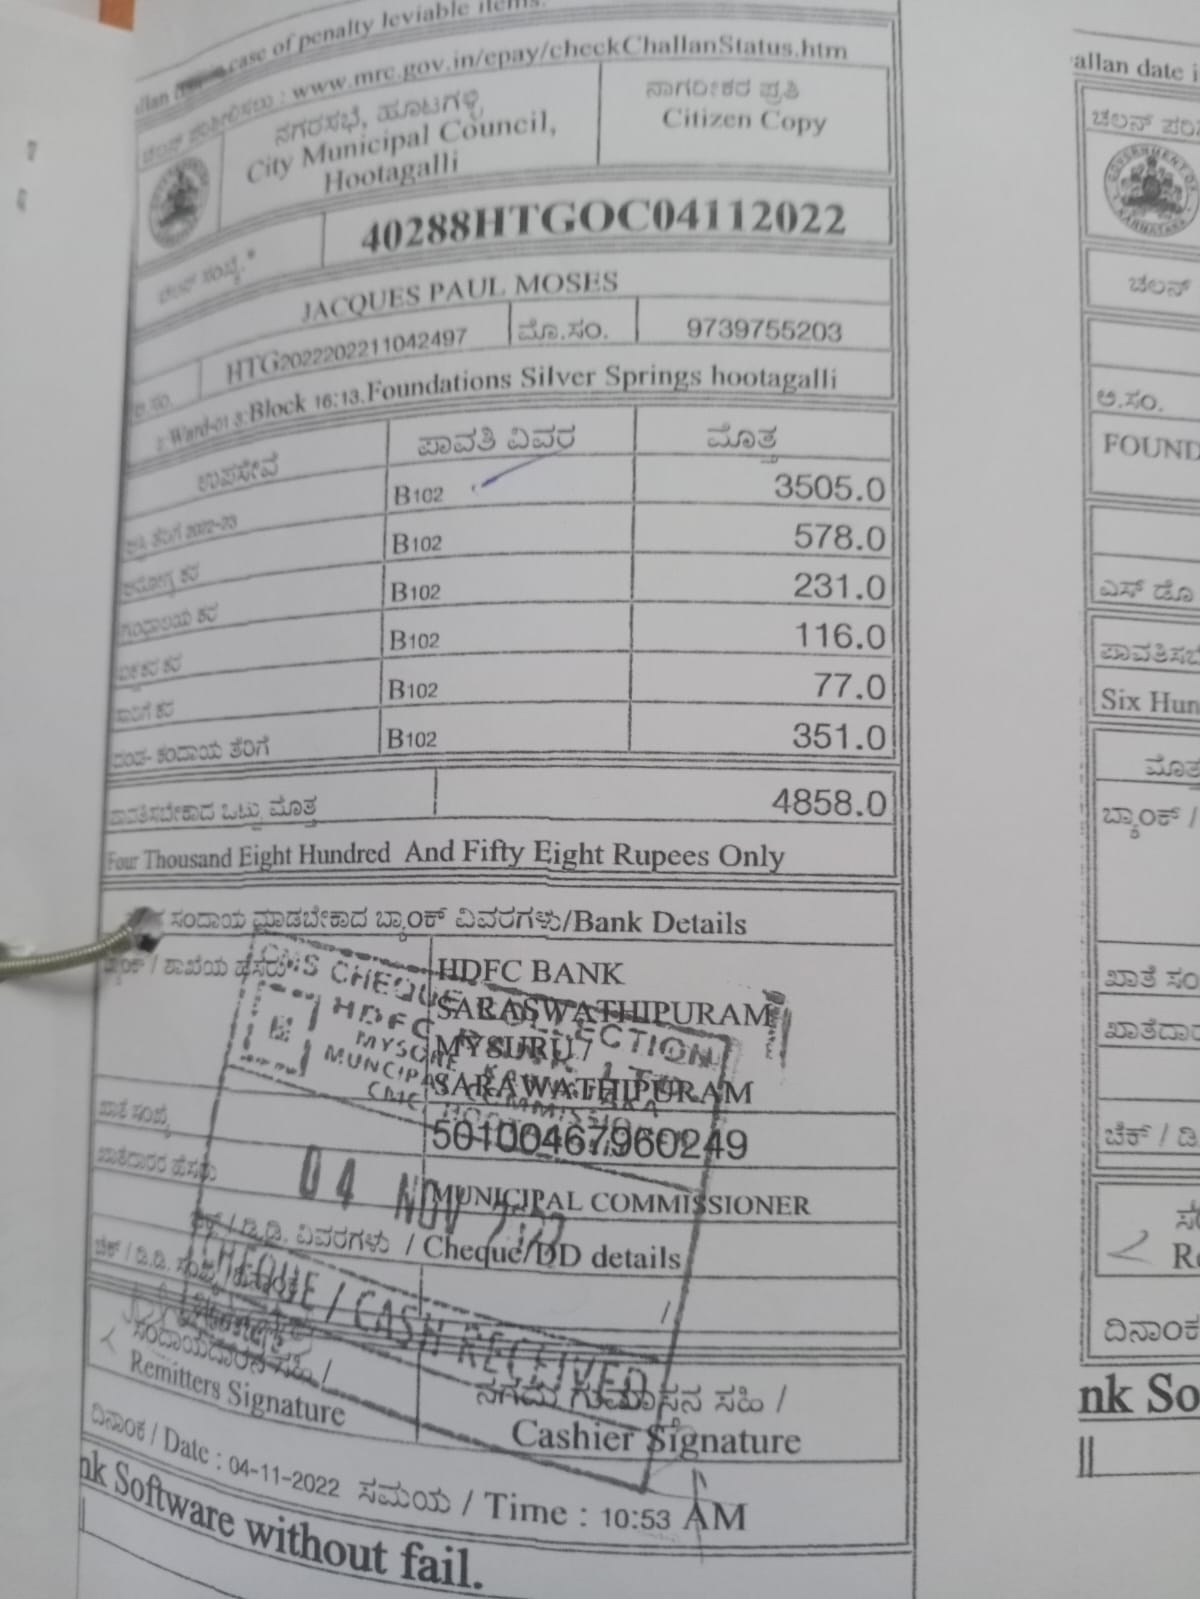 case of penalty leviable items.
: www.mrc.gov.in/epay/checkChallanStatus.htm
ನಗರಸಭೆ, ಹೂಟಗಳ್ಳಿ
City Municipal Council,
Hootagalli
ನಾಗರೀಕರ ಪ್ರತಿ
Citizen Copy
ಚಲನ್ ಸಂಖ್ಯೆ.*
40288HTGOC04112022
JACQUES PAUL MOSES
HTG2022202211042497 ಮೊ.ಸಂ. 9739755203
Ward-01 3:Block 16:13,Foundations Silver Springs hootagalli
ಉಪಸೇವೆ ಪಾವತಿ ವಿವರ ಮೊತ್ತ
ತೆರಿಗೆ 2022-23 B102 3505.0
ಆರೋಗ್ಯ ಕರ B102 578.0
ಗಂಥಾಲಯ ಕರ B102 231.0
ಕರ B102 116.0
ಸಾರಿಗೆ ಕರ B102 77.0
ದಂಡ- ಕಂದಾಯ ತೆರಿಗೆ B102 351.0
ಪಾವತಿಸಬೇಕಾದ ಒಟ್ಟು ಮೊತ್ತ 4858.0
Four Thousand Eight Hundred And Fifty Eight Rupees Only
ಸಂದಾಯ ಮಾಡಬೇಕಾದ ಬ್ಯಾಂಕ್ ವಿವರಗಳು/Bank Details
ಬ್ಯಾಂಕ್ / ಶಾಖೆಯ ಹೆಸರು HDFC BANK
SARASWATHIPURAM
MYSURU7
SARAWATHIPURAM
ಖಾತೆ ಸಂಖ್ಯೆ 50100467960249
ಖಾತೆದಾರರ ಹೆಸರು MUNICIPAL COMMISSIONER
CMS CHEQUE COLLECTION
HDFC BANK LTD
MYSORE
04 NOV 2022
CHEQUE / CASH RECEIVED
ಚೆಕ್ / ಡಿ.ಡಿ. ವಿವರಗಳು / Cheque/DD details
ಚೆಕ್ / ಡಿ.ಡಿ. /
ಸಂದಾಯದಾರನ ಸಹಿ /
Remitters Signature
ನಗದು ಗುಮಾಸ್ತನ ಸಹಿ /
Cashier Signature
ದಿನಾಂಕ / Date : 04-11-2022 ಸಮಯ / Time : 10:53 AM
nk Software without fail.
allan date i
ಚಲನ್
GOVERNMENT OF
KARNATAKA
ಚಲನ್
ಅ.ಸಂ.
FOUND
ಎಸ್ ಡೊ
Six Hun
ಮೊತ್ತ
ಬ್ಯಾಂಕ್ /
ಖಾತೆ ಸಂ
ಖಾತೆದಾ
ಚೆಕ್ / ಡಿ
ದಿನಾಂಕ
nk So